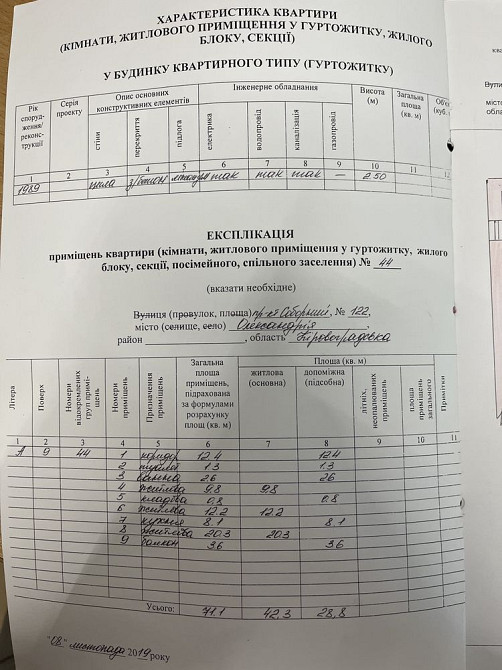 ХАРАКТЕРИСТИКА КВАРТИРИ
(КІМНАТИ, ЖИТЛОВОГО ПРИМІЩЕННЯ У ГУРТОЖИТКУ, ЖИЛОГО
БЛОКУ, СЕКЦІЇ)
У БУДИНКУ КВАРТИРНОГО ТИПУ (ГУРТОЖИТКУ)
Рік споруд-ження/реконс-трукції Серія проекту Опис основних конструктивних елементів Інженерне обладнання Висота (м) Загальна площа (кв. м)
стіни перекриття підлога електрика водопровід каналізація газопровід
1 2 3 4 5 6 7 8 9 10 11
1989 з/бетон так так так — 2.50
ЕКСПЛІКАЦІЯ
приміщень квартири (кімнати, житлового приміщення у гуртожитку, жилого
блоку, секції, посімейного, спільного заселення) № 44
(вказати необхідне)
Вулиця (провулок, площа) пр-кт Соборний, № 122,
місто (селище, село) Олександрія,
район , область Кіровоградська
Літера Поверх Номери відокремлених груп примі-щень Номери приміщень Призначення приміщень Загальна площа приміщень, підрахована за формулами розрахунку площ (кв. м) Площа (кв. м)
житлова (основна) допоміжна (підсобна) літніх, неопалюваних приміщень площа приміщень загального Примітки
1 2 3 4 5 6 7 8 9 10 11
А 9 44 1 коридор 12.4 12.4
2 туалет 1.3 1.3
3 ванна 2.6 2.6
4 житлова 9.8 9.8
5 кладова 0.8 0.8
6 житлова 12.2 12.2
7 кухня 8.1 8.1
8 житлова 20.3 20.3
9 балкон 3.6 3.6
Усього: 71.1 42.3 28.8
"08" листопада 2019 року